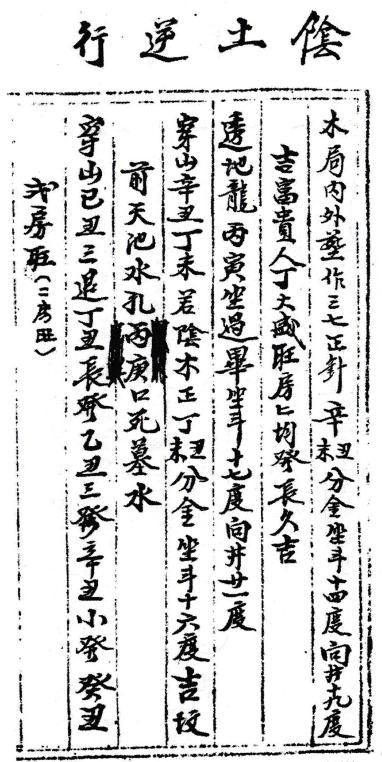 陰土逆行
木局內外塟作三七正針辛丑未分金坐斗十四度向井九度
吉富貴人丁大盛旺房々均發長久吉
透地龍丙寅坐過畢坐斗十七度向井廿一度
穿山辛丑丁未若陰木正丁丑未分金坐斗十六度吉坟
前天池水孔丙庚口死墓水
穿山已丑三退丁丑長發乙丑三發辛丑小發癸丑
弍房旺(二房旺)